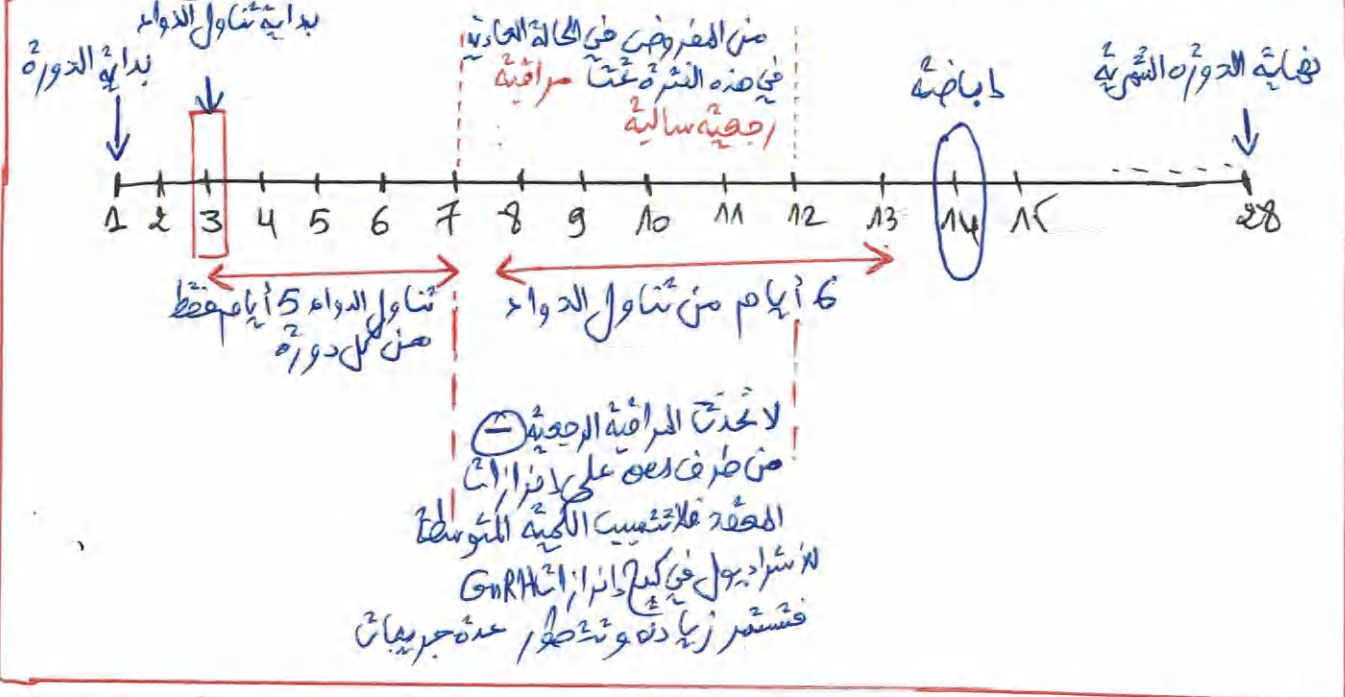 بداية تناول الدواء
بداية الدورة
من المفروض في الحالة العادية
في هذه الفترة تمت مراقبة
رجعية سالبة
اباضة
نهاية الدورة الشهرية
1 2 3 4 5 6 7 8 9 10 11 12 13 14 15 28
تناول الدواء 5 أيام فقط
من كل دورة
6 أيام من تناول الدواء
لا تحدث المراقبة الرجعية -
من طرف oes على افرازات
المعقد فلا تتسبب الكمية المتوسطة
للأستراديول في كبح افرازات GnRH
فتستمر زيادته وتتطور عدة جريبات